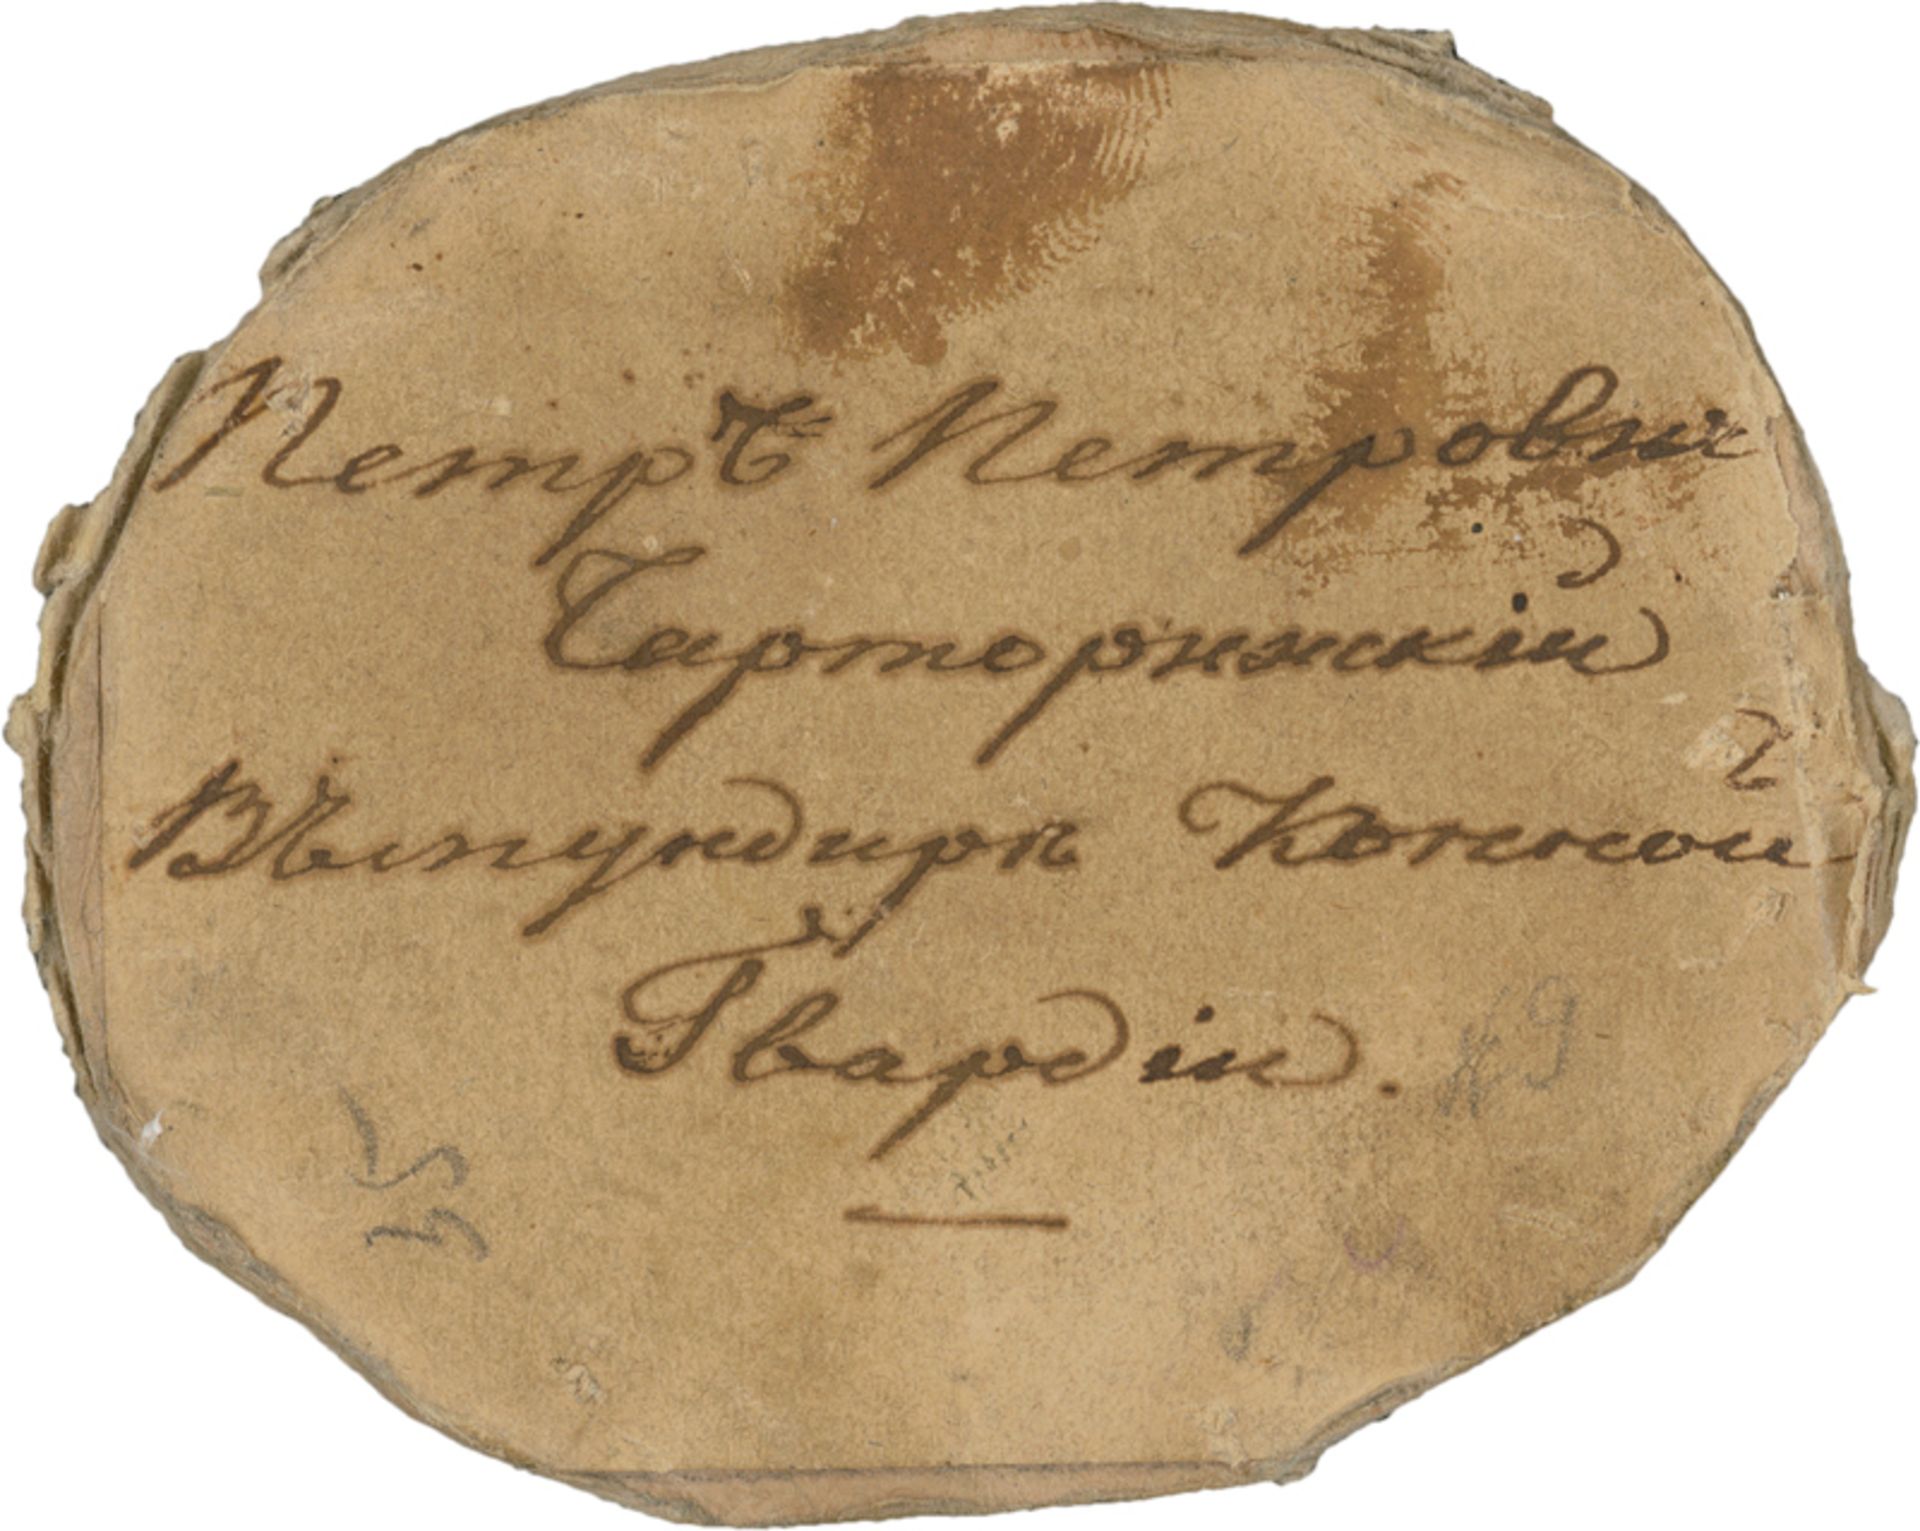 Петръ Петрович
Чарторижскій
Въ мундирѣ Конной
Гвардіи.
№ 9
35